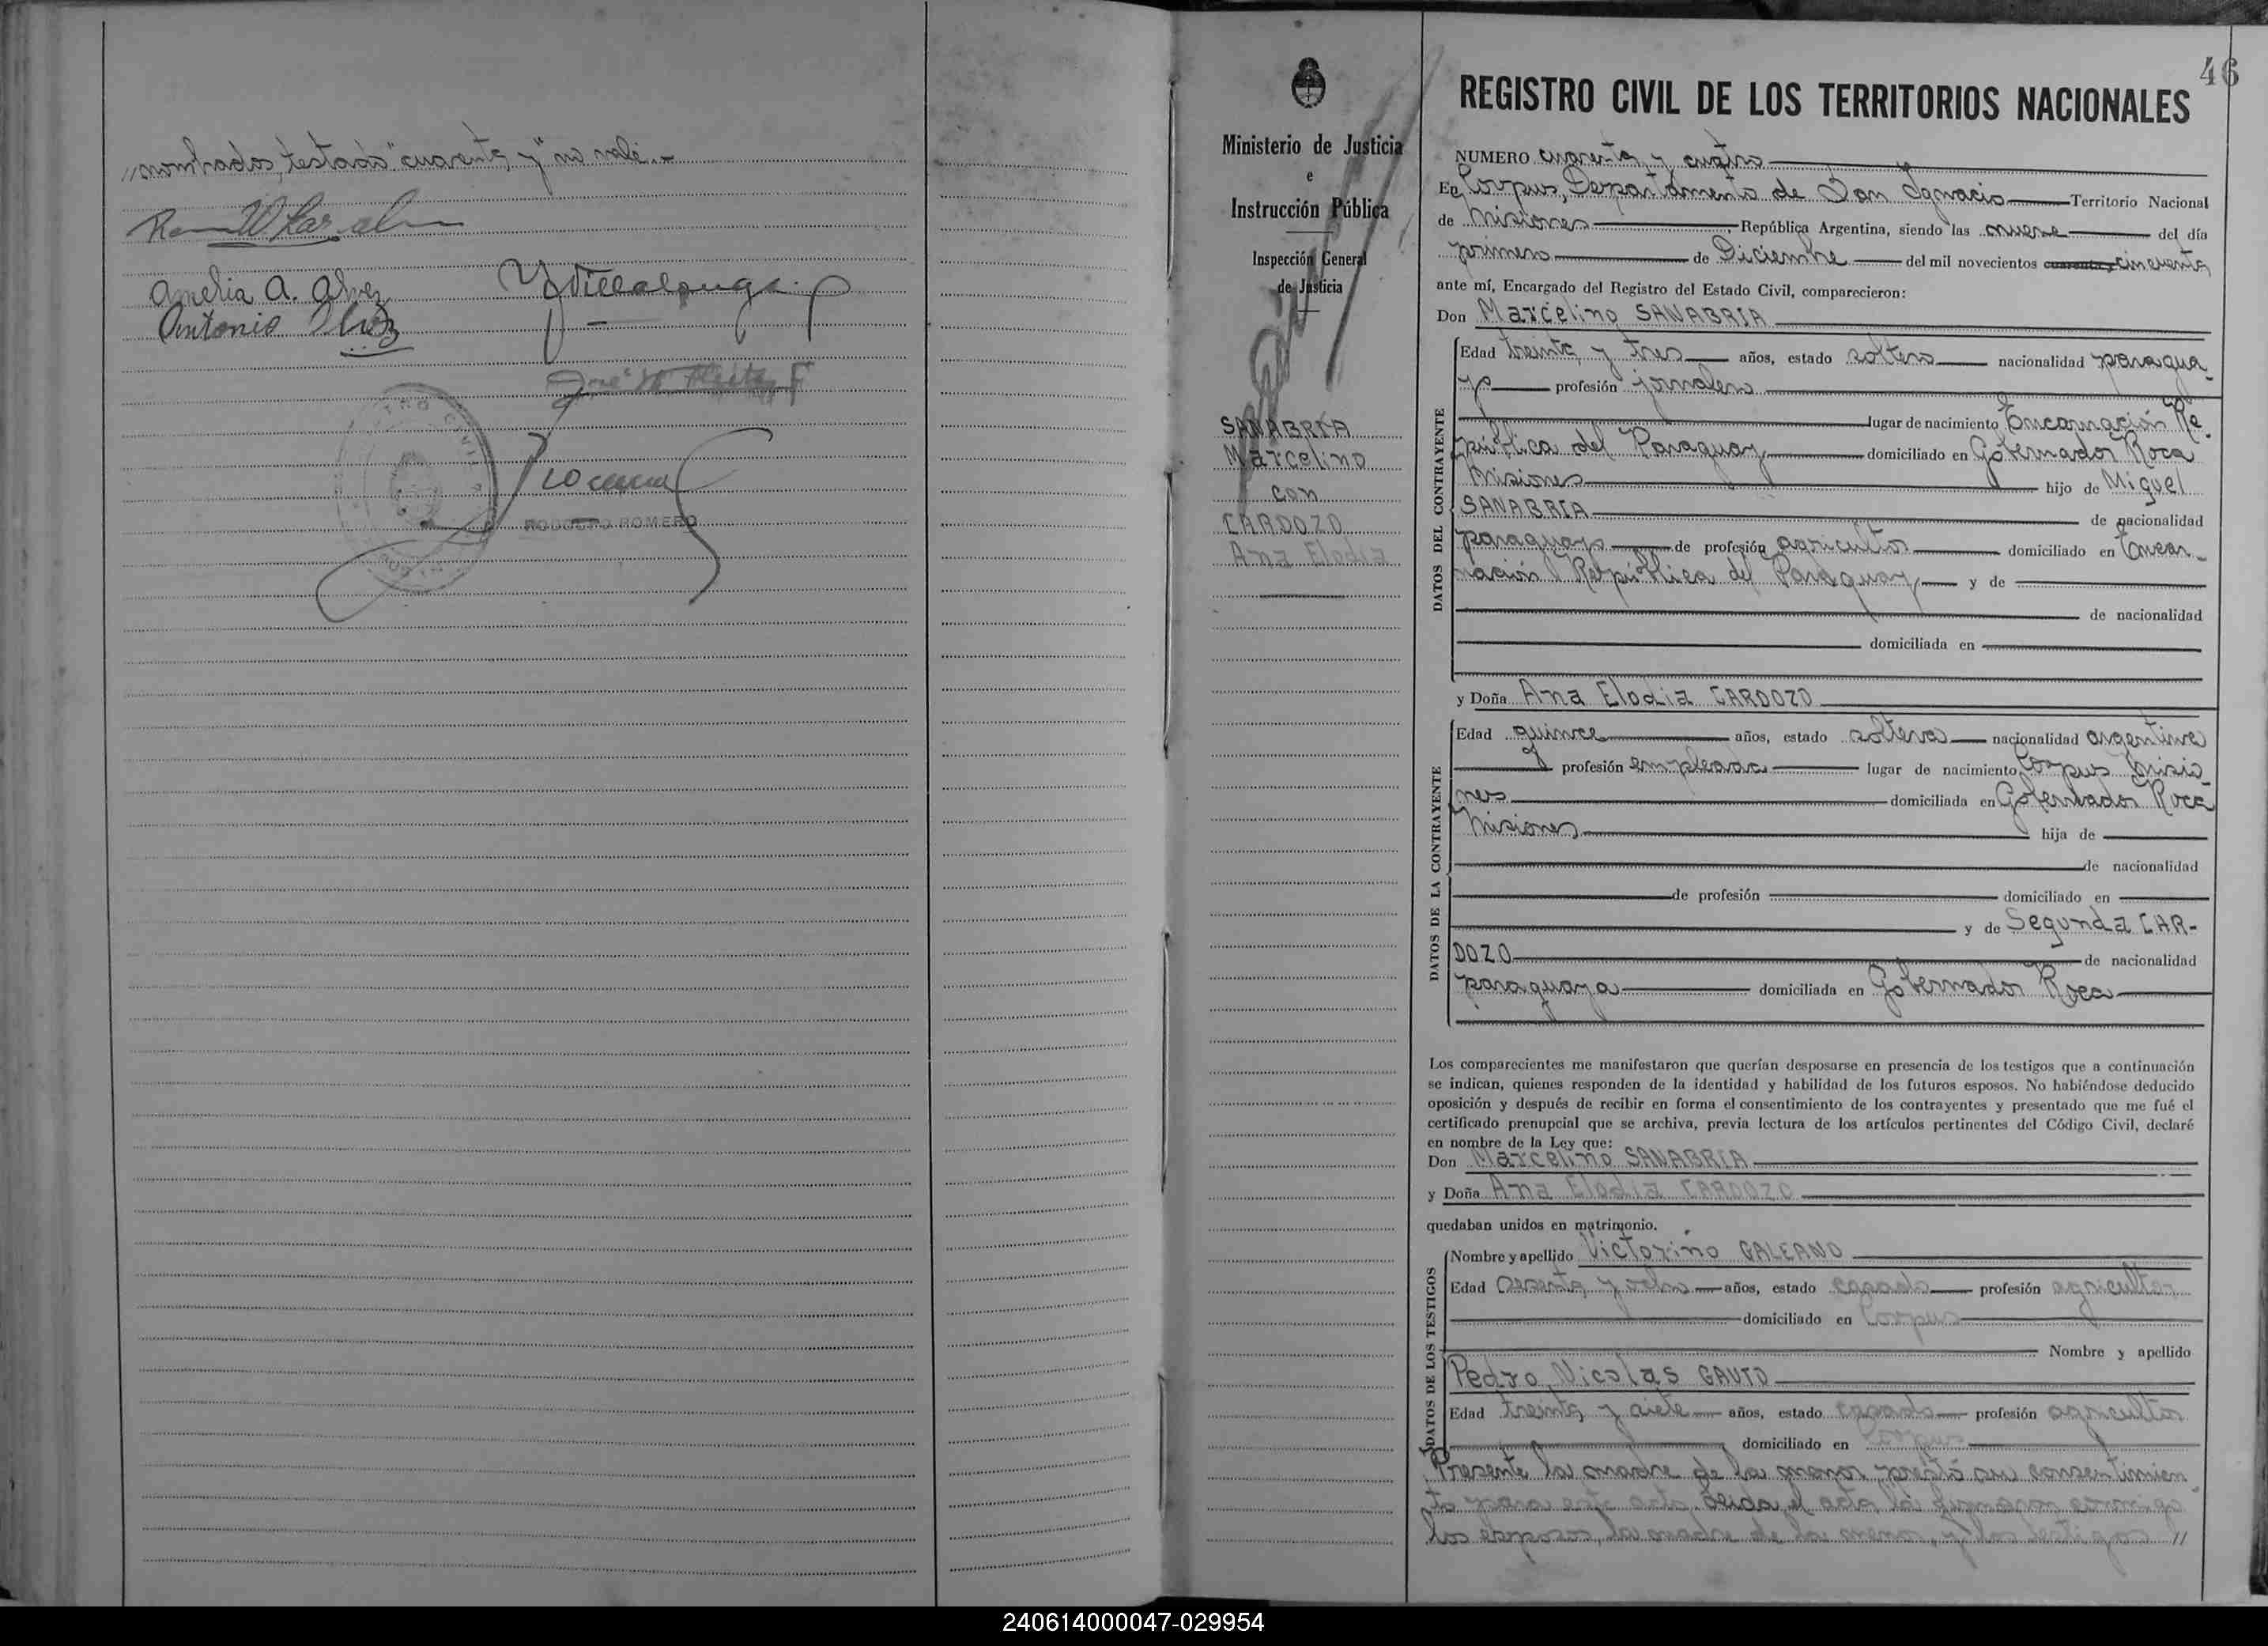 // nombrados, testado "cuarenta y" no vale.-
Amelia A. Alvez
Antonio Alvez
Y Villalonga
RODOLFO ROMERO
46
Ministerio de Justicia
e
Instrucción Pública
Inspección General
de Justicia
SANABRIA
Marcelino
con
CARDOZO
Ana Elodia
REGISTRO CIVIL DE LOS TERRITORIOS NACIONALES
NUMERO cuarenta y cuatro
En Corpus, Departamento de San Ignacio Territorio Nacional
de Misiones República Argentina, siendo las nueve del día
primero de Diciembre del mil novecientos cuarenta y cincuenta
ante mí, Encargado del Registro del Estado Civil, comparecieron:
Don Marcelino SANABRIA
DATOS DEL CONTRAYENTE
Edad treinta y tres años, estado soltero nacionalidad paragua-
yo profesión jornalero
lugar de nacimiento Encarnación Re-
pública del Paraguay domiciliado en Gobernador Roca
Misiones hijo de Miguel
SANABRIA de nacionalidad
paraguayo de profesión agricultor domiciliado en Encar-
nación República del Paraguay y de
de nacionalidad
domiciliada en
y Doña Ana Elodia CARDOZO
DATOS DE LA CONTRAYENTE
Edad quince años, estado soltera nacionalidad argentina
profesión empleada lugar de nacimiento Corpus Misio-
nes domiciliada en Gobernador Roca
Misiones hija de
de nacionalidad
de profesión domiciliado en
y de Segunda CAR-
DOZO de nacionalidad
paraguaya domiciliada en Gobernador Roca
Los comparecientes me manifestaron que querían desposarse en presencia de los testigos que a continuación
se indican, quienes responden de la identidad y habilidad de los futuros esposos. No habiéndose deducido
oposición y después de recibir en forma el consentimiento de los contrayentes y presentado que me fué el
certificado prenupcial que se archiva, previa lectura de los artículos pertinentes del Código Civil, declaré
en nombre de la Ley que:
Don Marcelino SANABRIA
y Doña Ana Elodia CARDOZO
quedaban unidos en matrimonio.
DATOS DE LOS TESTIGOS
Nombre y apellido Victorino GALEANO
Edad sesenta y ocho años, estado casado profesión agricultor
domiciliado en Corpus
Nombre y apellido
Pedro Nicolas GAUTO
Edad treinta y siete años, estado casado profesión agricultor
domiciliado en Corpus
Presente la madre de la menor prestó su consentimien-
to para este acto. Leida el acta, la firmaron conmigo
los esposos, la madre de la menor, y los testigos //
240614000047-029954